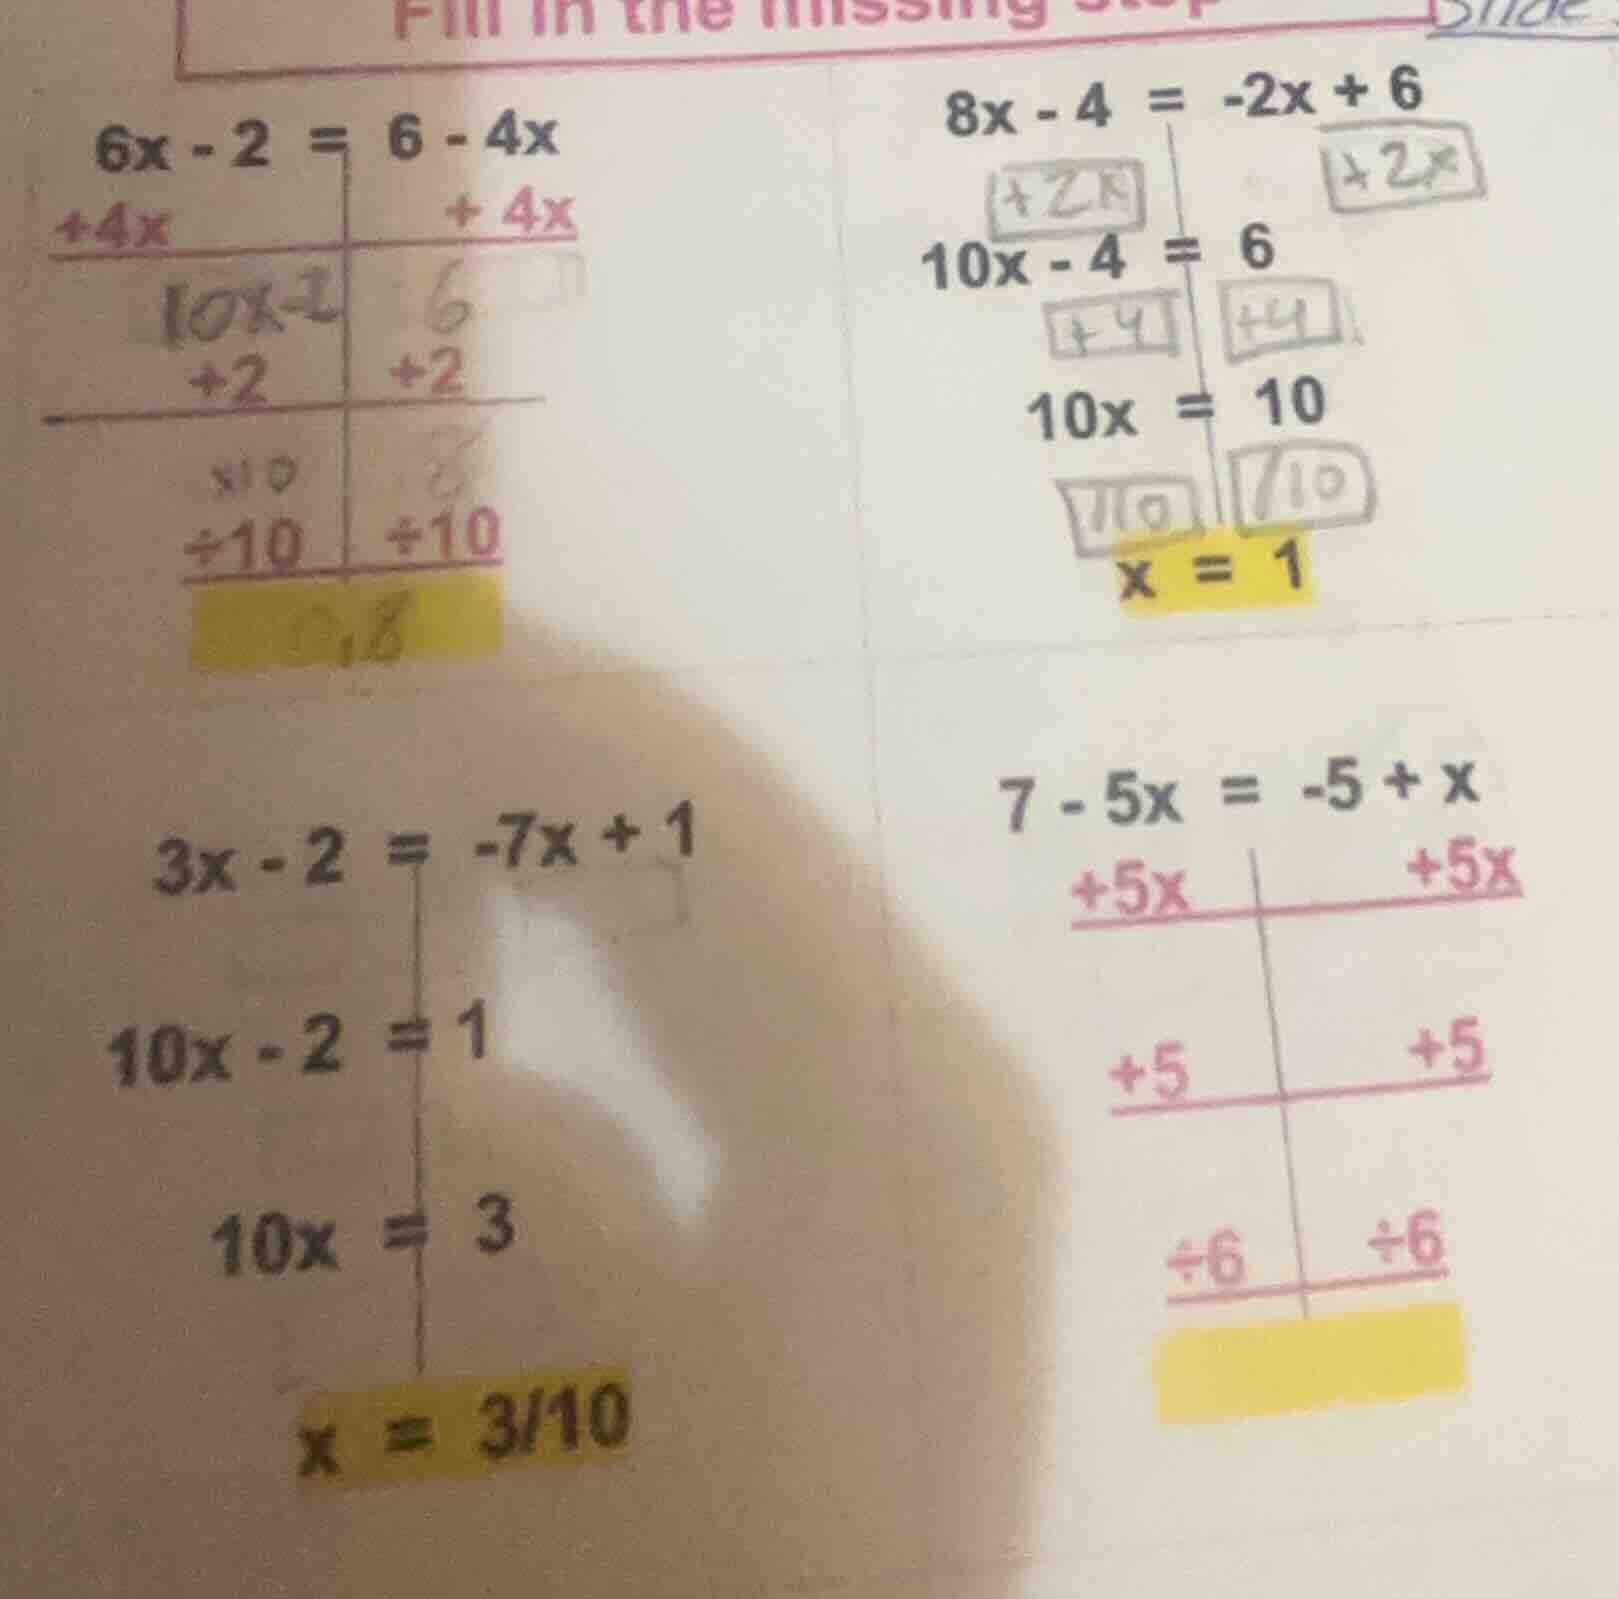 Fill in the missing step
Slide
6x - 2 = 6 - 4x
+4x + 4x
10x-2 6
+2 +2
x10 8
÷10 ÷10
0.8
8x - 4 = -2x + 6
+2x +2x
10x - 4 = 6
+4 +4
10x = 10
/10 /10
x = 1
3x - 2 = -7x + 1
10x - 2 = 1
10x = 3
x = 3/10
7 - 5x = -5 + x
+5x +5x
+5 +5
÷6 ÷6